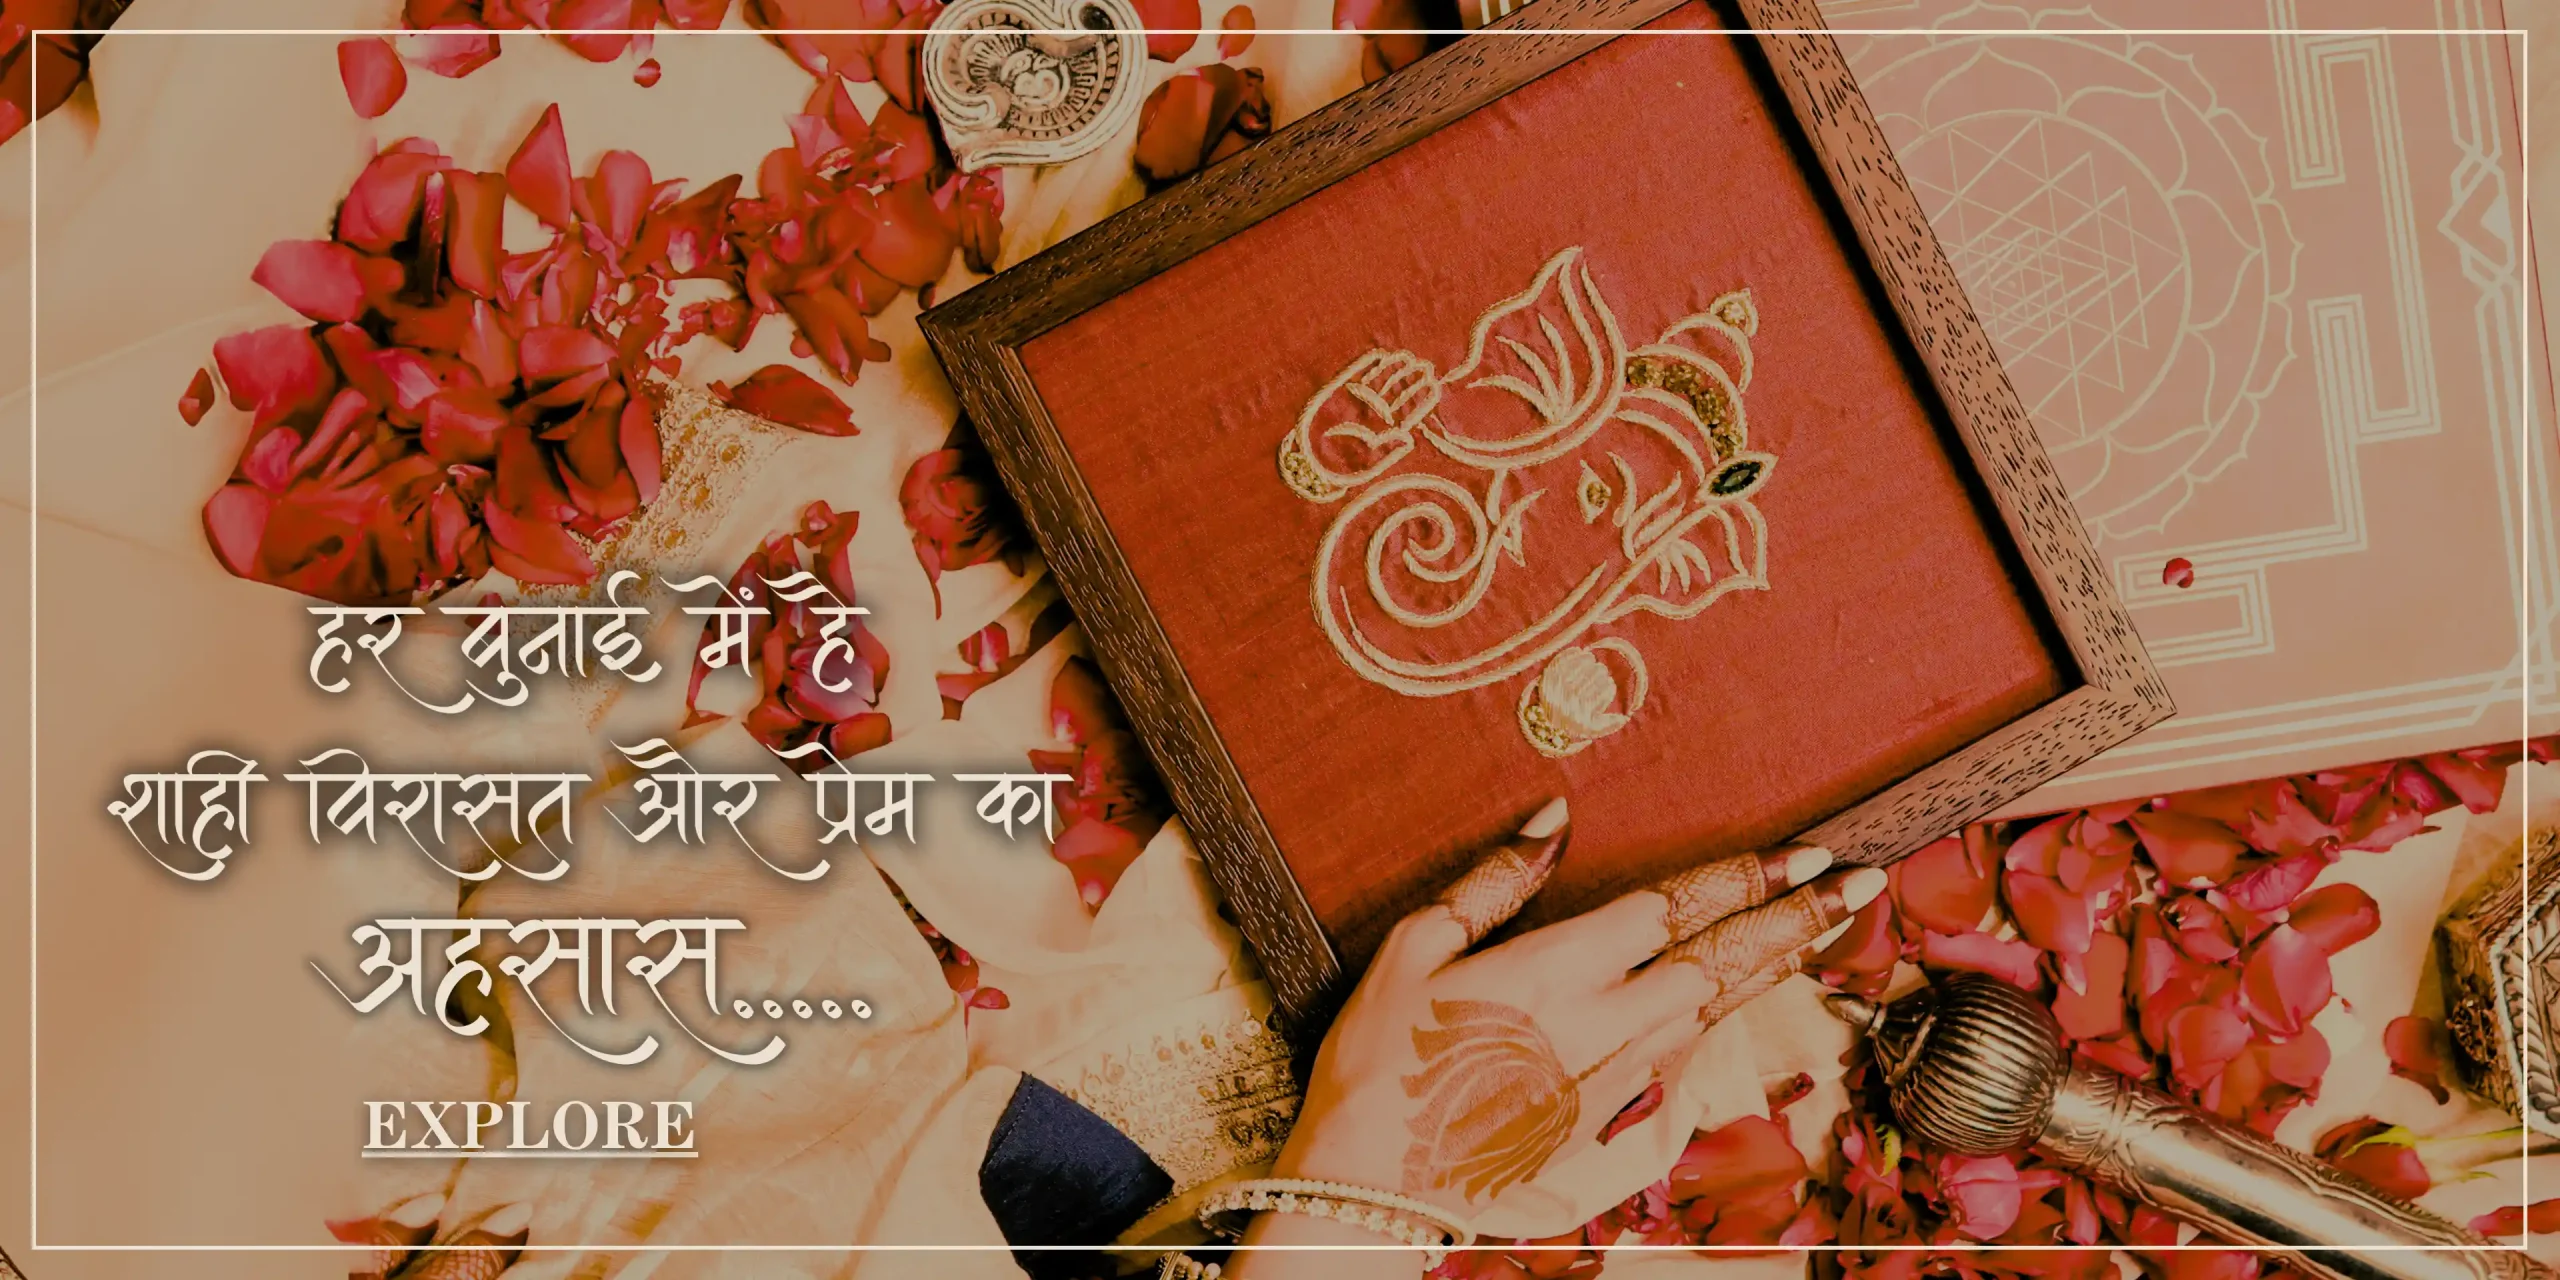 हर बुनाई में है
शाही विरासत और प्रेम का
अहसास.....
EXPLORE